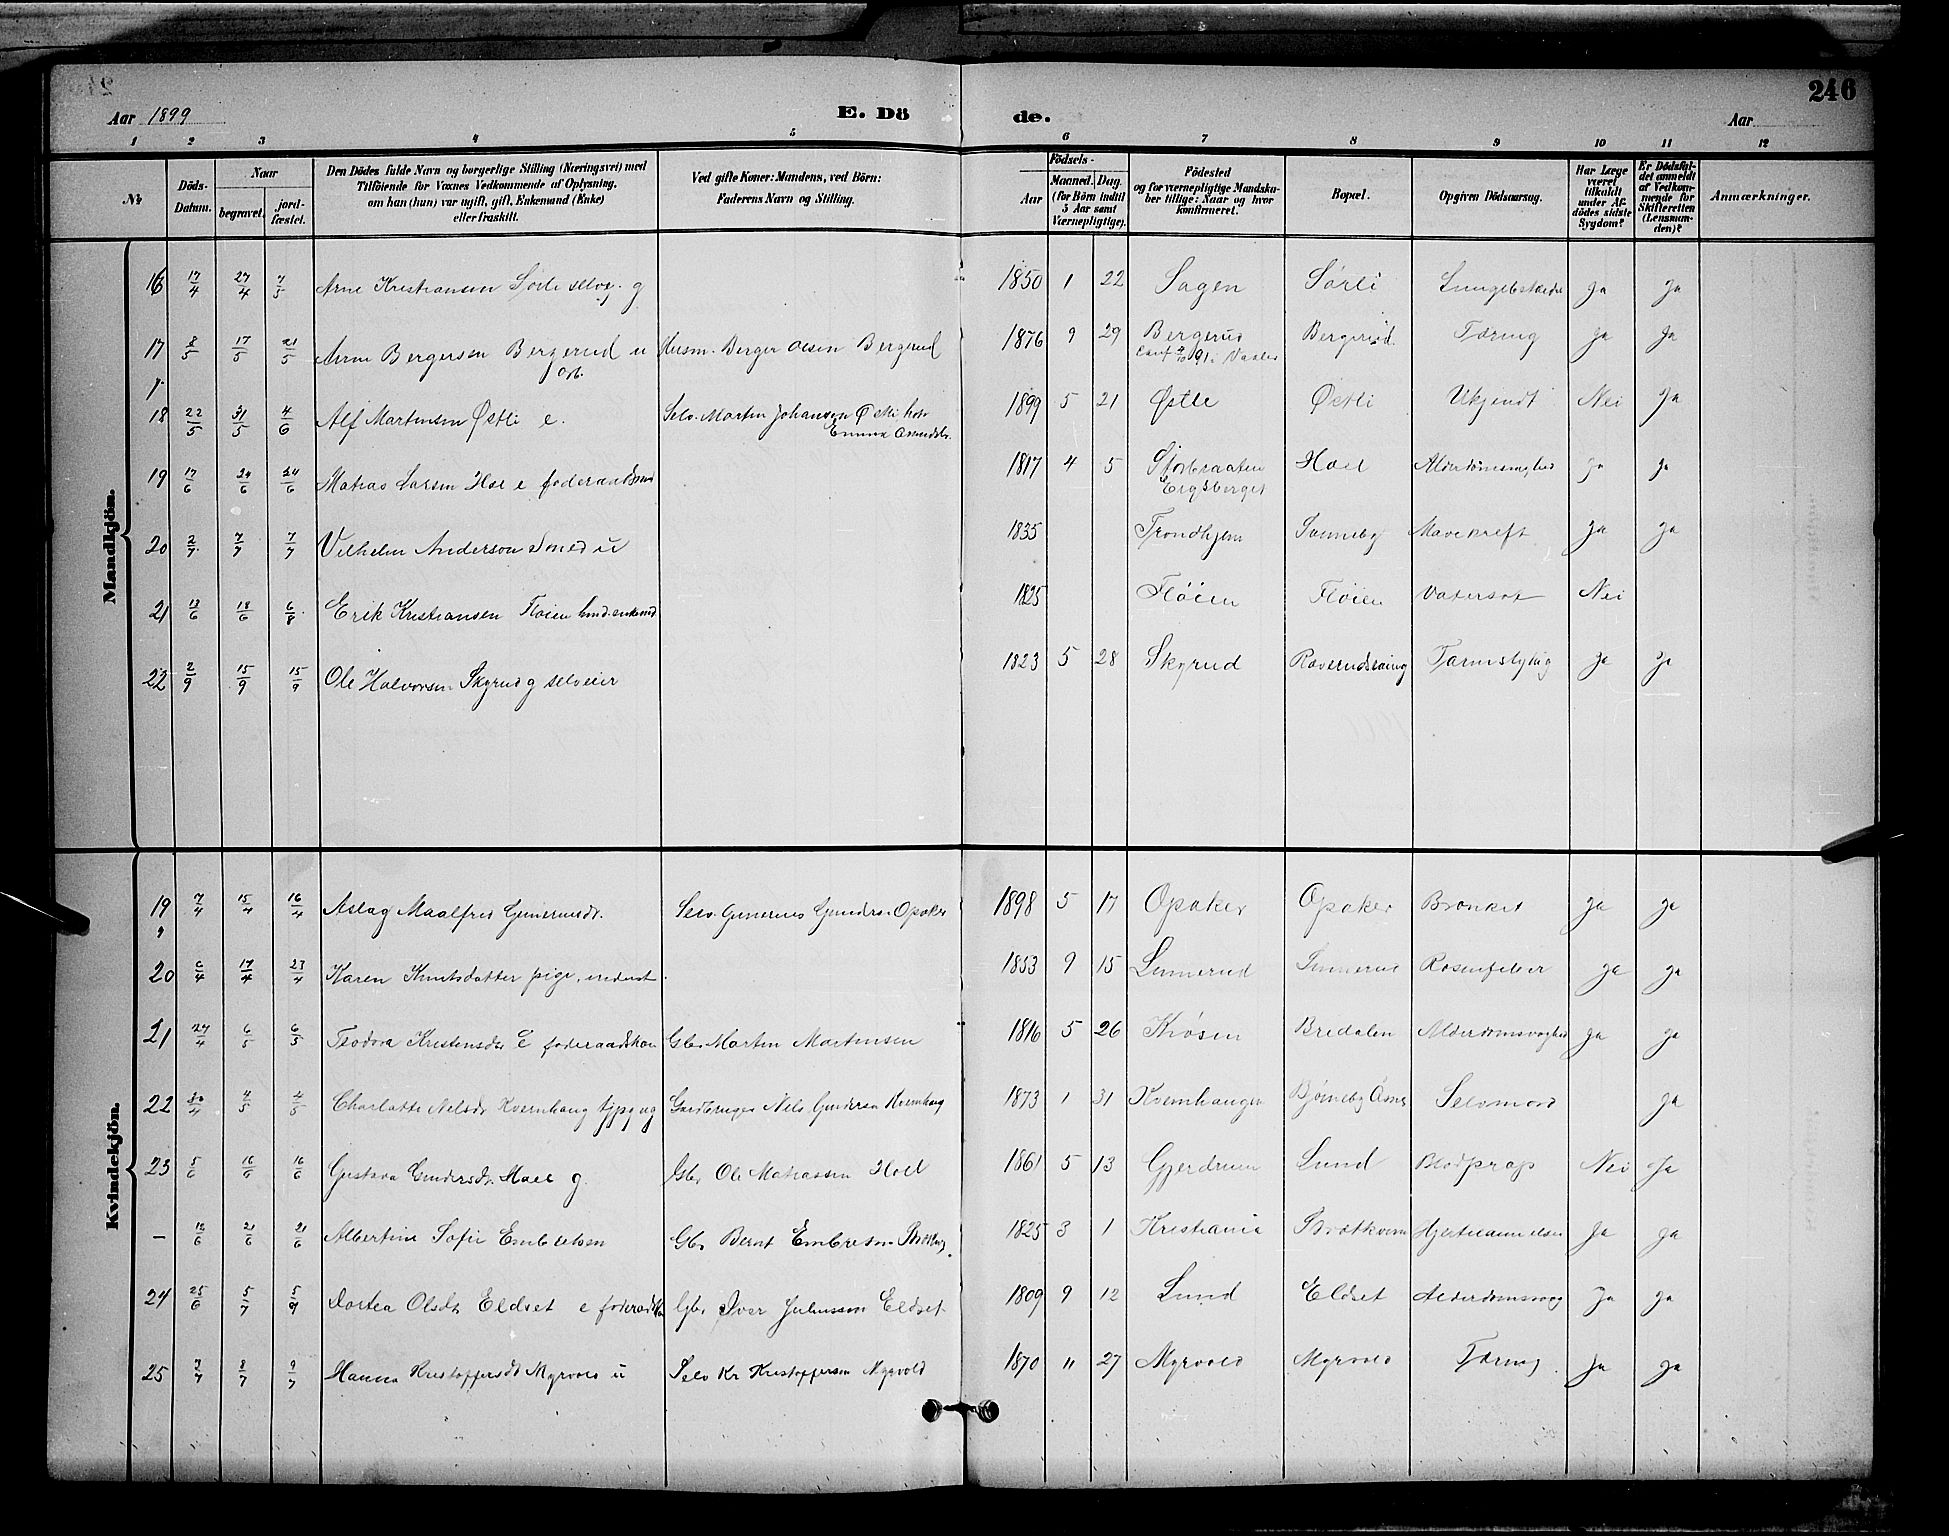 246
Aar 1899
E. Döde.
Aar
1 2 3 4 5 6 7 8 9 10 11 12
№
Döds-Datum.
Naar
begravet.
jord-fæstet.
Den Dödes fulde Navn og borgerlige Stilling (Næringsvei) med
Tilföiende for Voxnes Vedkommende af Oplysning,
om han (hun) var ugift, gift, Enkemand (Enke)
eller fraskilt.
Ved gifte Koner: Mandens, ved Börn:
Faderens Navn og Stilling.
Födsels-
Aar
Maaned. Dag.
(for Börn indtil
5 Aar samt
Værnepligtige).
Födested
og for værnepligtige Mandska-
ber tillige: Naar og hvor
konfirmeret.
Bopæl.
Opgiven Dödsaarsag.
Har Læge
været
tilkaldt
under Af-
dödes sidste
Sygdom?
Er Dödsfal-
det anmeldt
af Vedkom-
mende for
Skifteretten
(Lensman-
den)?
Anmærkninger.
Mandkjön.
16 17/4 27/4 7/5 Arne Kristiansen Sörli selvei. g 1850 1 22 Sagen Sörli Ja Ja
17 8/5 17/5 21/5 Arne Bergersen Bergerud u Husm. Berger Olsen Bergerud 1876 9 29 Bergerud Bergerud Tæring Ja Ja
18 22/5 31/5 4/6 Alf Martinsen Østli e. Selv. Martin Johansen Østli hos 1899 5 21 Østli Østli Ukjendt Nei Ja
19 17/6 24/6 24/6 Matias Larsen Hoel e foderaadsmd 1817 4 5 Storbraaten Hoel Alderdomsvaghed Ja Ja
20 2/7 7/7 7/7 Vilhelm Anderson Smed u 1835 Trondhjem Sanneby Mavekreft Ja Ja
21 13/6 18/6 6/8 Erik Kristiansen Flöien 1825 Flöien Flöien Vatersot Nei
22 2/9 15/9 15/9 Ole Halvorsen Skyrud g selveier 1823 5 28 Skyrud Raverudsæing Tarmslyng Ja Ja
Kvindekjön.
19 7/4 15/4 16/4 Aslag Maalfrid Gunerusdr. Selv. Gunerus Gunders. Opaker 1898 5 17 Opaker Opaker Bronkit Ja Ja
20 6/4 17/4 23/4 Karen Knutsdatter pige, inderst 1853 9 15 Linnerud Linnerud Rosenfeber Ja Ja
21 27/4 6/5 6/5 Teodora Kristensdr E foderaadskone Gbr. Martin Martinsen 1816 5 26 Kiøsen Bredalen Alderdomsvaghed Ja Ja
22 30/4 4/5 4/5 Charlotte Nelsdr Kvernhaug tjpg ug Gardbruger Nils Gundersen Kvernhaug 1873 1 31 Kvernhaugen Bjørneby Selvmord Ja
23 5/6 16/6 16/6 Gustava Gundersdr. Hoel g. Gbr Ole Matiassen Hoel 1861 5 13 Gjerdrum Lund Blodprop Nei Ja
— 12/6 21/6 21/6 Albertine Sofie Embretsen Gbr Bernt Embretsen 1825 3 1 Kristiania Brøtkvern Ja Ja
24 25/6 5/7 5/9 Dortea Olsdtr Eldset e foderaadsk Gbr Iver Juliussen Eldset 1809 9 12 Lund Eldset Alderdomsvag Ja Ja
25 7/7 8/7 9/7 Hanna Kristoffersdt Myrvold u Selv Kr Kristoffersen Myrvold 1870 11 27 Myrvold Myrvold Tæring Ja Ja